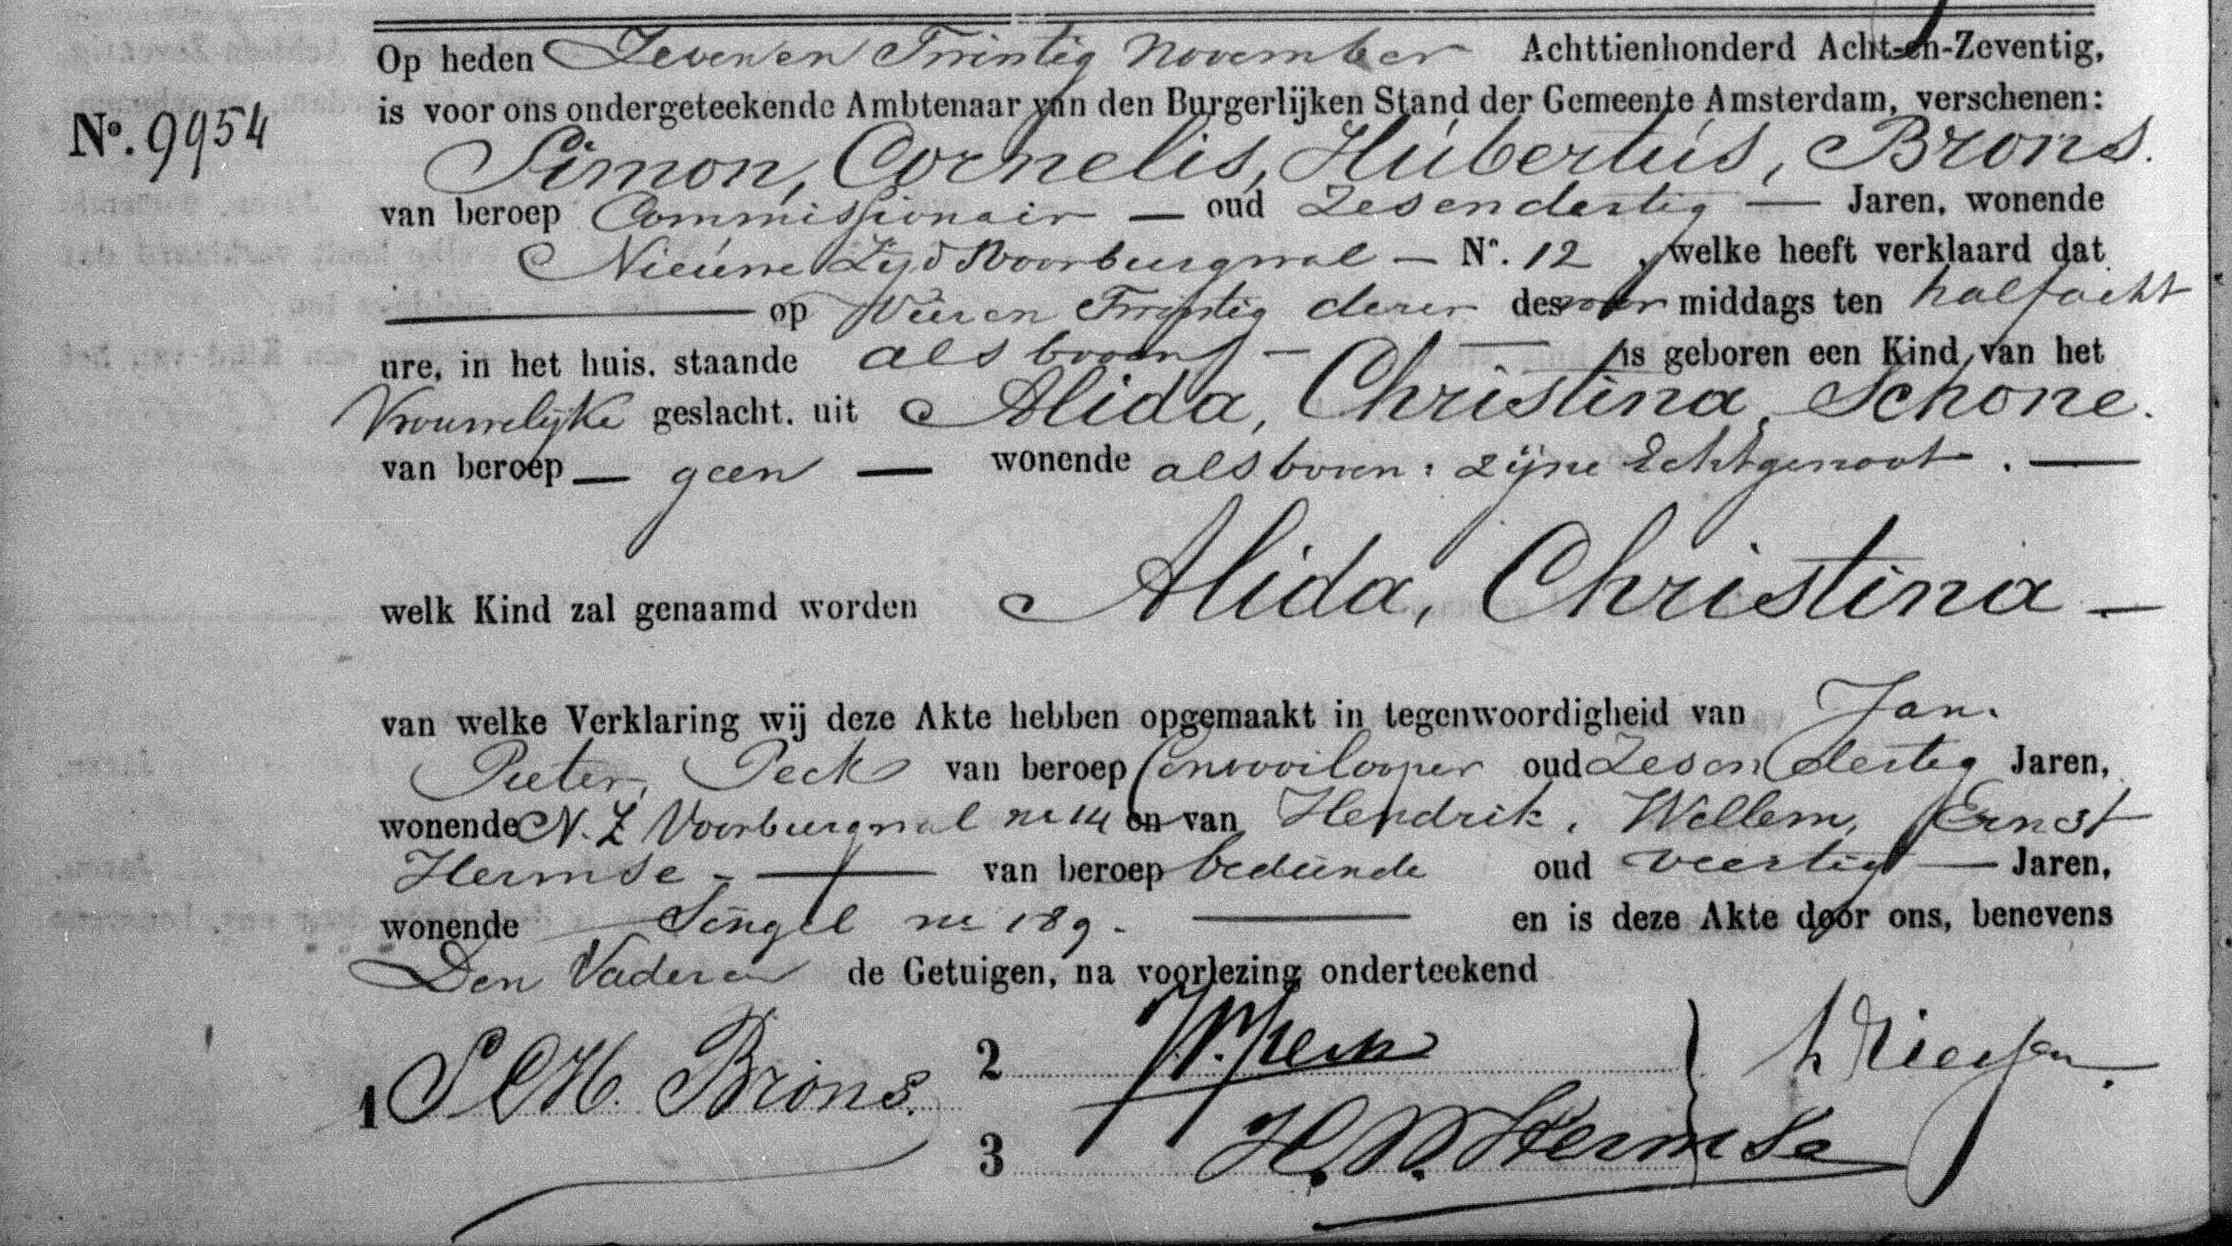 Op heden Zeven en Twintig November Achttienhonderd Acht-en-Zeventig,
is voor ons ondergeteekende Ambtenaar van den Burgerlijken Stand der Gemeente Amsterdam, verschenen:
No. 9954
Simon, Cornelis, Hubertus, Brons.
van beroep Commissionair — oud Zesendertig — Jaren, wonende
Nieuwe Zijds Voorburgwal — No. 12, welke heeft verklaard dat
— op Vier en Twintig dezer des voor middags ten half acht
ure, in het huis, staande als boven — is geboren een Kind van het
Vrouwelijke geslacht, uit Alida, Christina, Schone.
van beroep — geen — wonende als boven: zijne Echtgenoot. —
welk Kind zal genaamd worden Alida, Christina —
van welke Verklaring wij deze Akte hebben opgemaakt in tegenwoordigheid van Jan.
Pieter, Peck van beroep Convooilooper oud Zes en dertig Jaren,
wonende N. Z Voorburgwal no 14 en van Hendrik, Willem, Ernst
Hermse — van beroep bediende oud veertig — Jaren,
wonende Singel no 189. — en is deze Akte door ons, benevens
Den Vader en de Getuigen, na voorlezing onderteekend
1 S C H. Brons. 2 J.P. Peck
3 H. W. Hermse